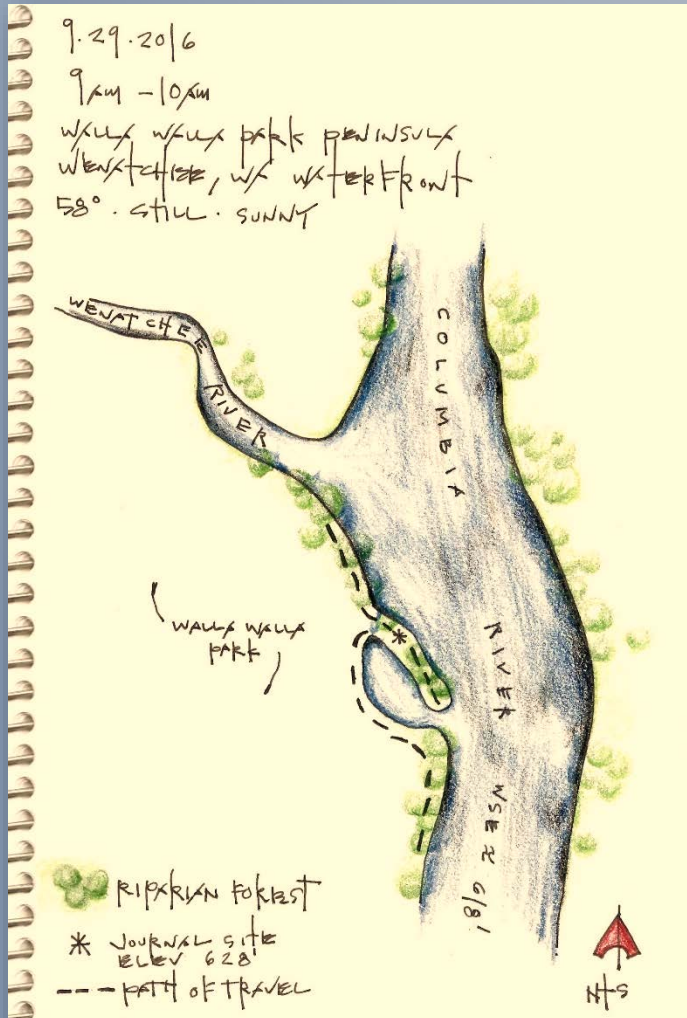 9.29.2016
9AM - 10AM
WALLA WALLA PARK PENINSULA
WENATCHEE, WA WATERFRONT
58° . STILL . SUNNY
WENATCHEE
RIVER
COLUMBIA
RIVER
WSEL 618'
WALLA WALLA
PARK
RIPARIAN FOREST
* JOURNAL SITE
ELEV 628'
--- PATH OF TRAVEL
NTS